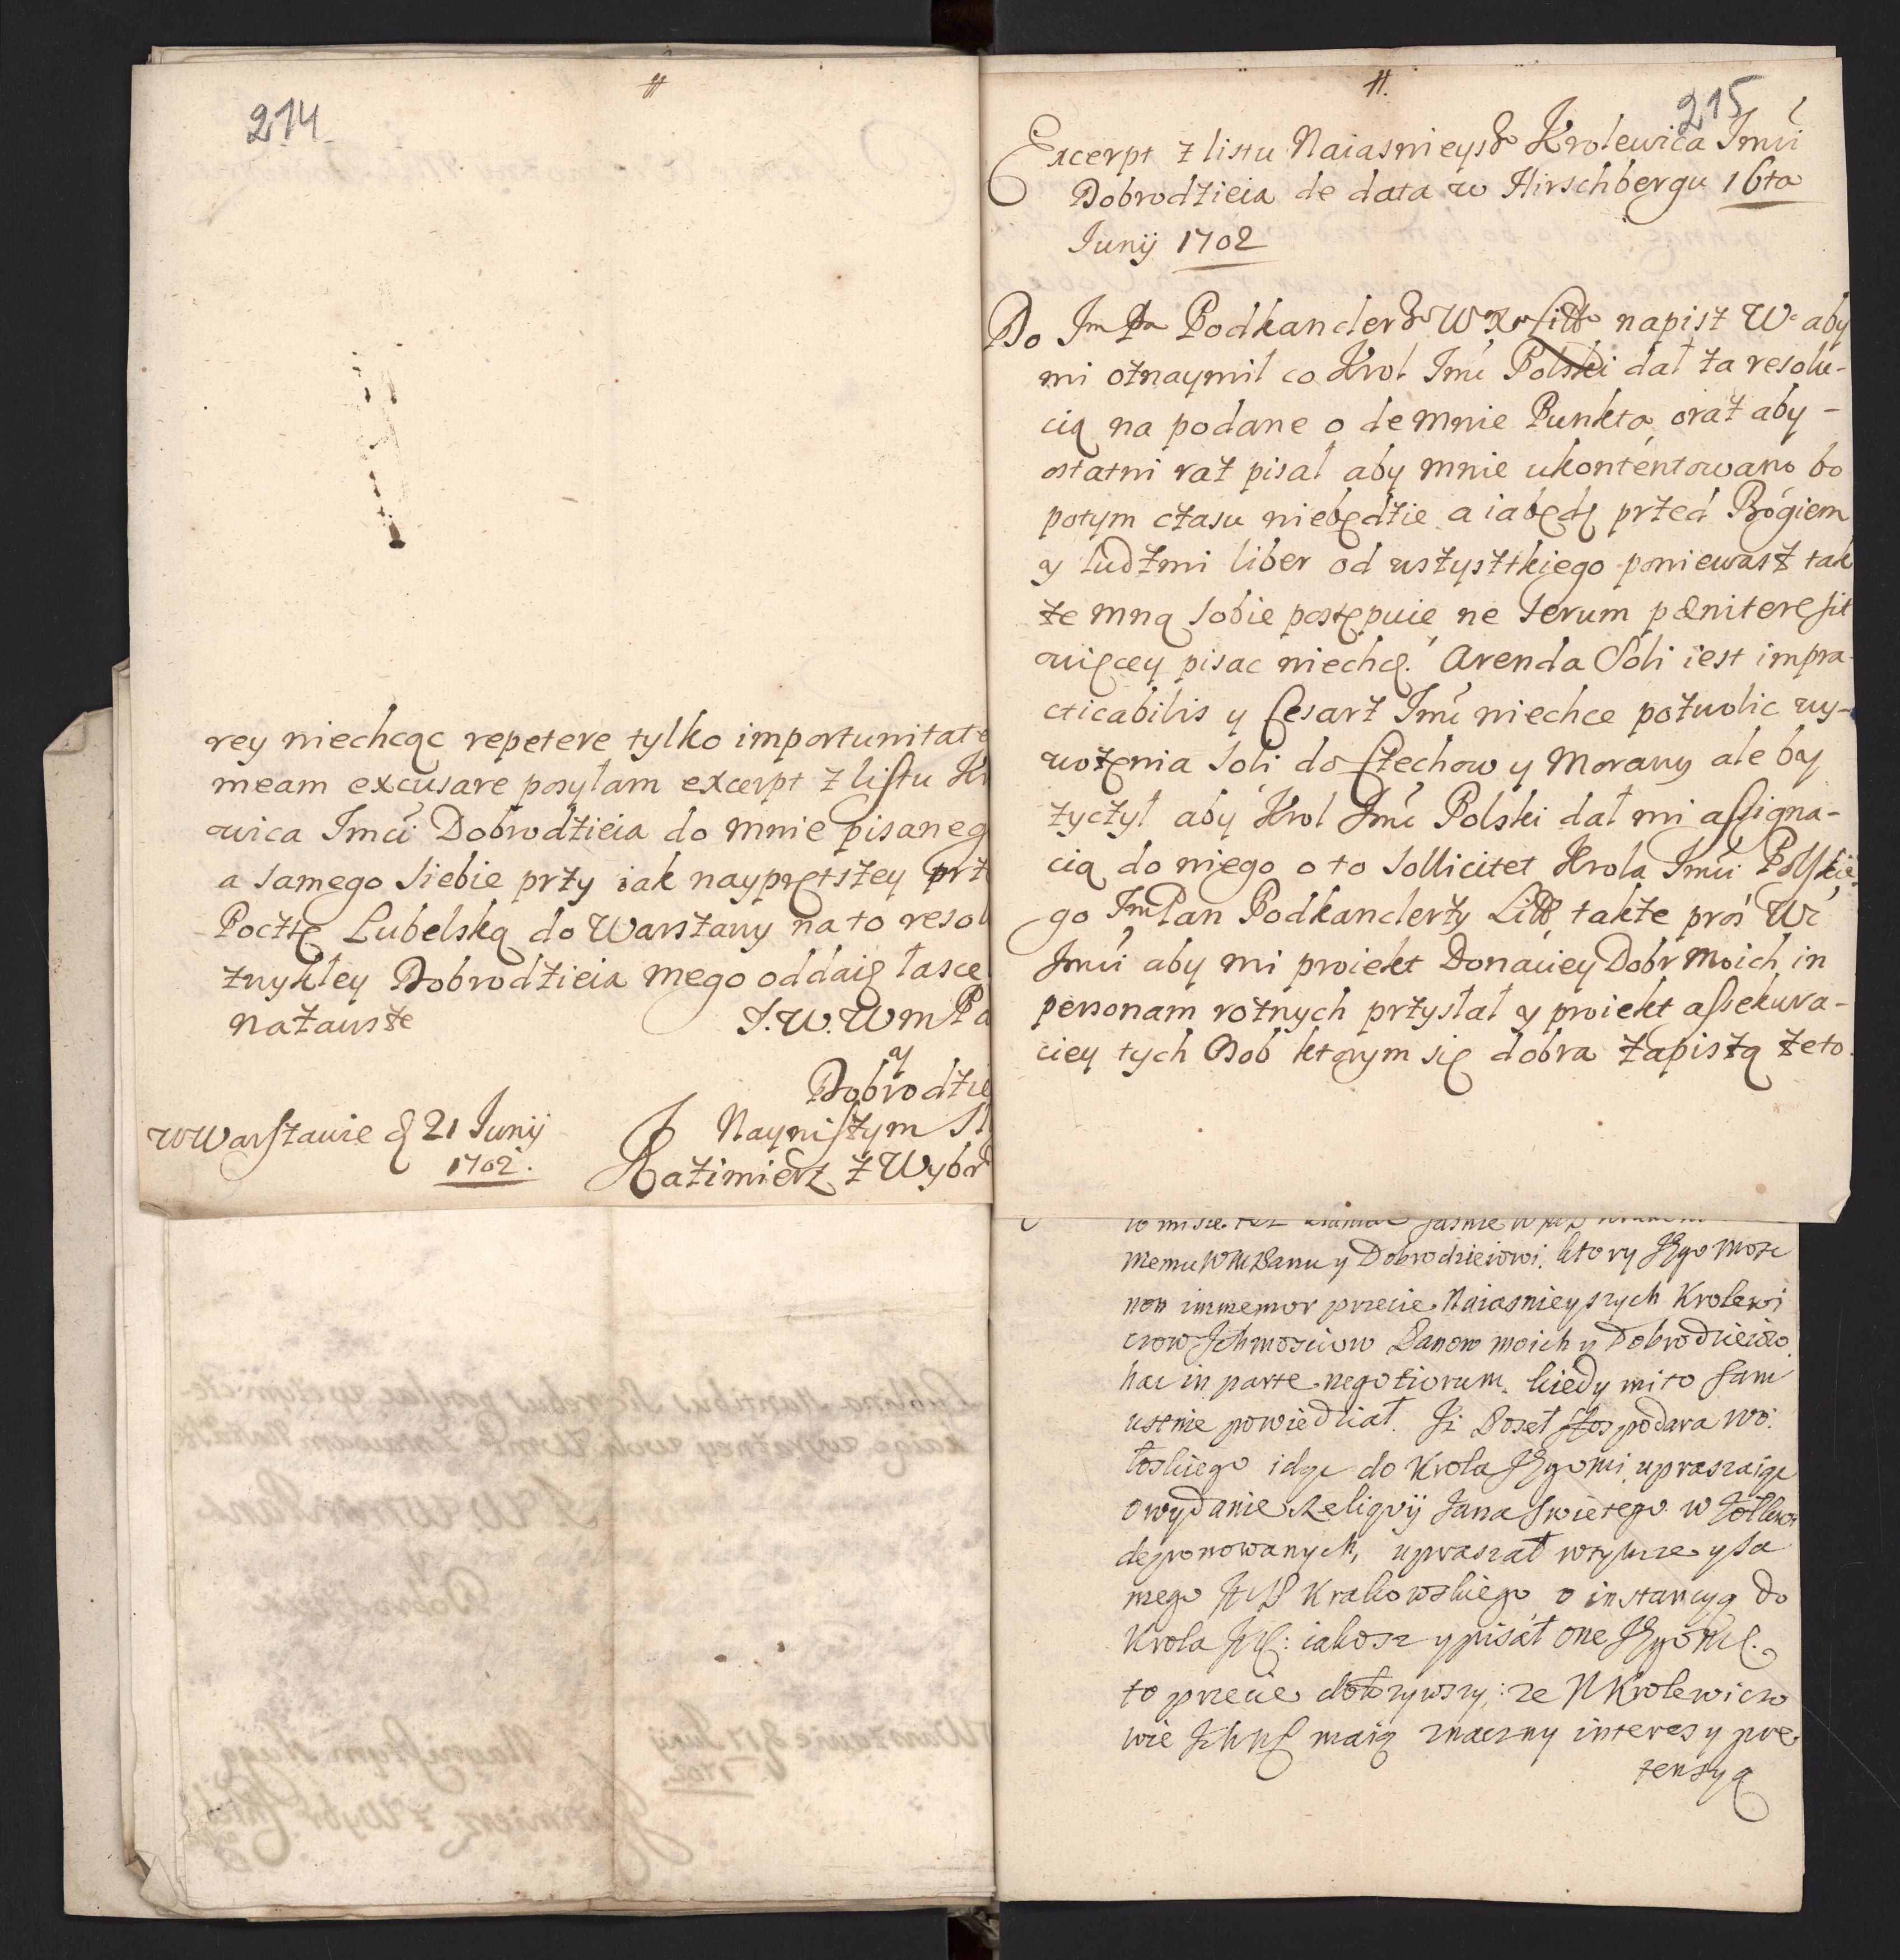 214
#
rey niechcąc repetere tylko importunitate
meam excusare posyłam excerpt z listu Kr
owica Imci Dobrodzieia do mnie pisaneg
a samego siebie przy iak nayprętszey prz
Pocztę Lubelską do Warszawy na to resol
zwykłey Dobrodzieia mego oddaię łasce
nazawsze J.W.WmPa
y
Dobrodzie
w Warszawie d 21 Junij Nayniszym Sł
1702. Kazimierz z Wybr
#.
215
Excerpt z listu Naiasnieysго Krolewica Imci
Dobrodzieia de data w Hirschbergu 16ta
Junij 1702
Do Jm Pa Podkanclerго WXLitto napisz Wc aby
mi oznaymił co Krol Imć Polski dał za resolu-
cią na podane o de mnie Punkta, oraz aby -
ostatni raz pisał aby mnie ukontentowano bo
potym czasu niebędzie a iabędę przed Bogiem
y ludzmi liber od wszystkiego poniewasz tak
ze mną sobie postępuie ne serum pœnitere sit
więcey pisac niechcę. Arenda Soli iest impra-
cticabilis y Cesarz Imć niechce pozwolic wy-
wozenia soli do Czechow y Morawy ale by
zyczył aby Krol Imć Polski dał mi assigna-
cią do niego o to sollicitet Krola Imci Polskie-
go Jm Pan Podkanclerzy Litt, takze proś Wć
Imci aby mi proiekt Donaciey Dobr moich in
personam roznych przysłał y proiekt assekura-
ciey tych Osob ktorym się dobra zapiszą zeto
memu WMPanu y Dobrodzieiowi, ktory Jego Mosc
non immemor przecie Naiasnieyszych Krolewi
czow Ichmosciow Panow moich y Dobrodzieiow
hac in parte negotiorum, kiedy mi to sam
ustnie powiedział. Iż Poseł Hospodara Wo:
łoskiego idąc do Krola Jegomci, upraszaiąc
o wydanie Reliqvij Jana Swietego w Żołkwi
deponowanych, upraszał wtymze y sa
mego JMP Krakowskiego o instancyą do
Krola JM: iakosz y pisał one Jego MC.
to przecie dołozywszy: ze NKrolewiczo
wie IchMC maią znaczny interes y pre
tensyą